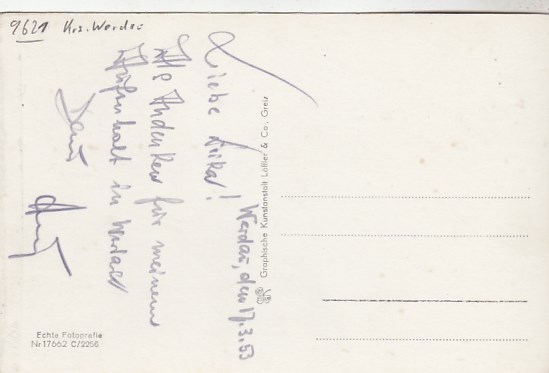 9621 Krs. Werdau
Werdau, den 17.3.53
Liebe Erika!
Als Andenken für meinen
Aufenthalt in Werdau
Dein
Graphische Kunstanstalt Löffler & Co., Greiz
Echte Fotografie
Nr 17662 C/2256